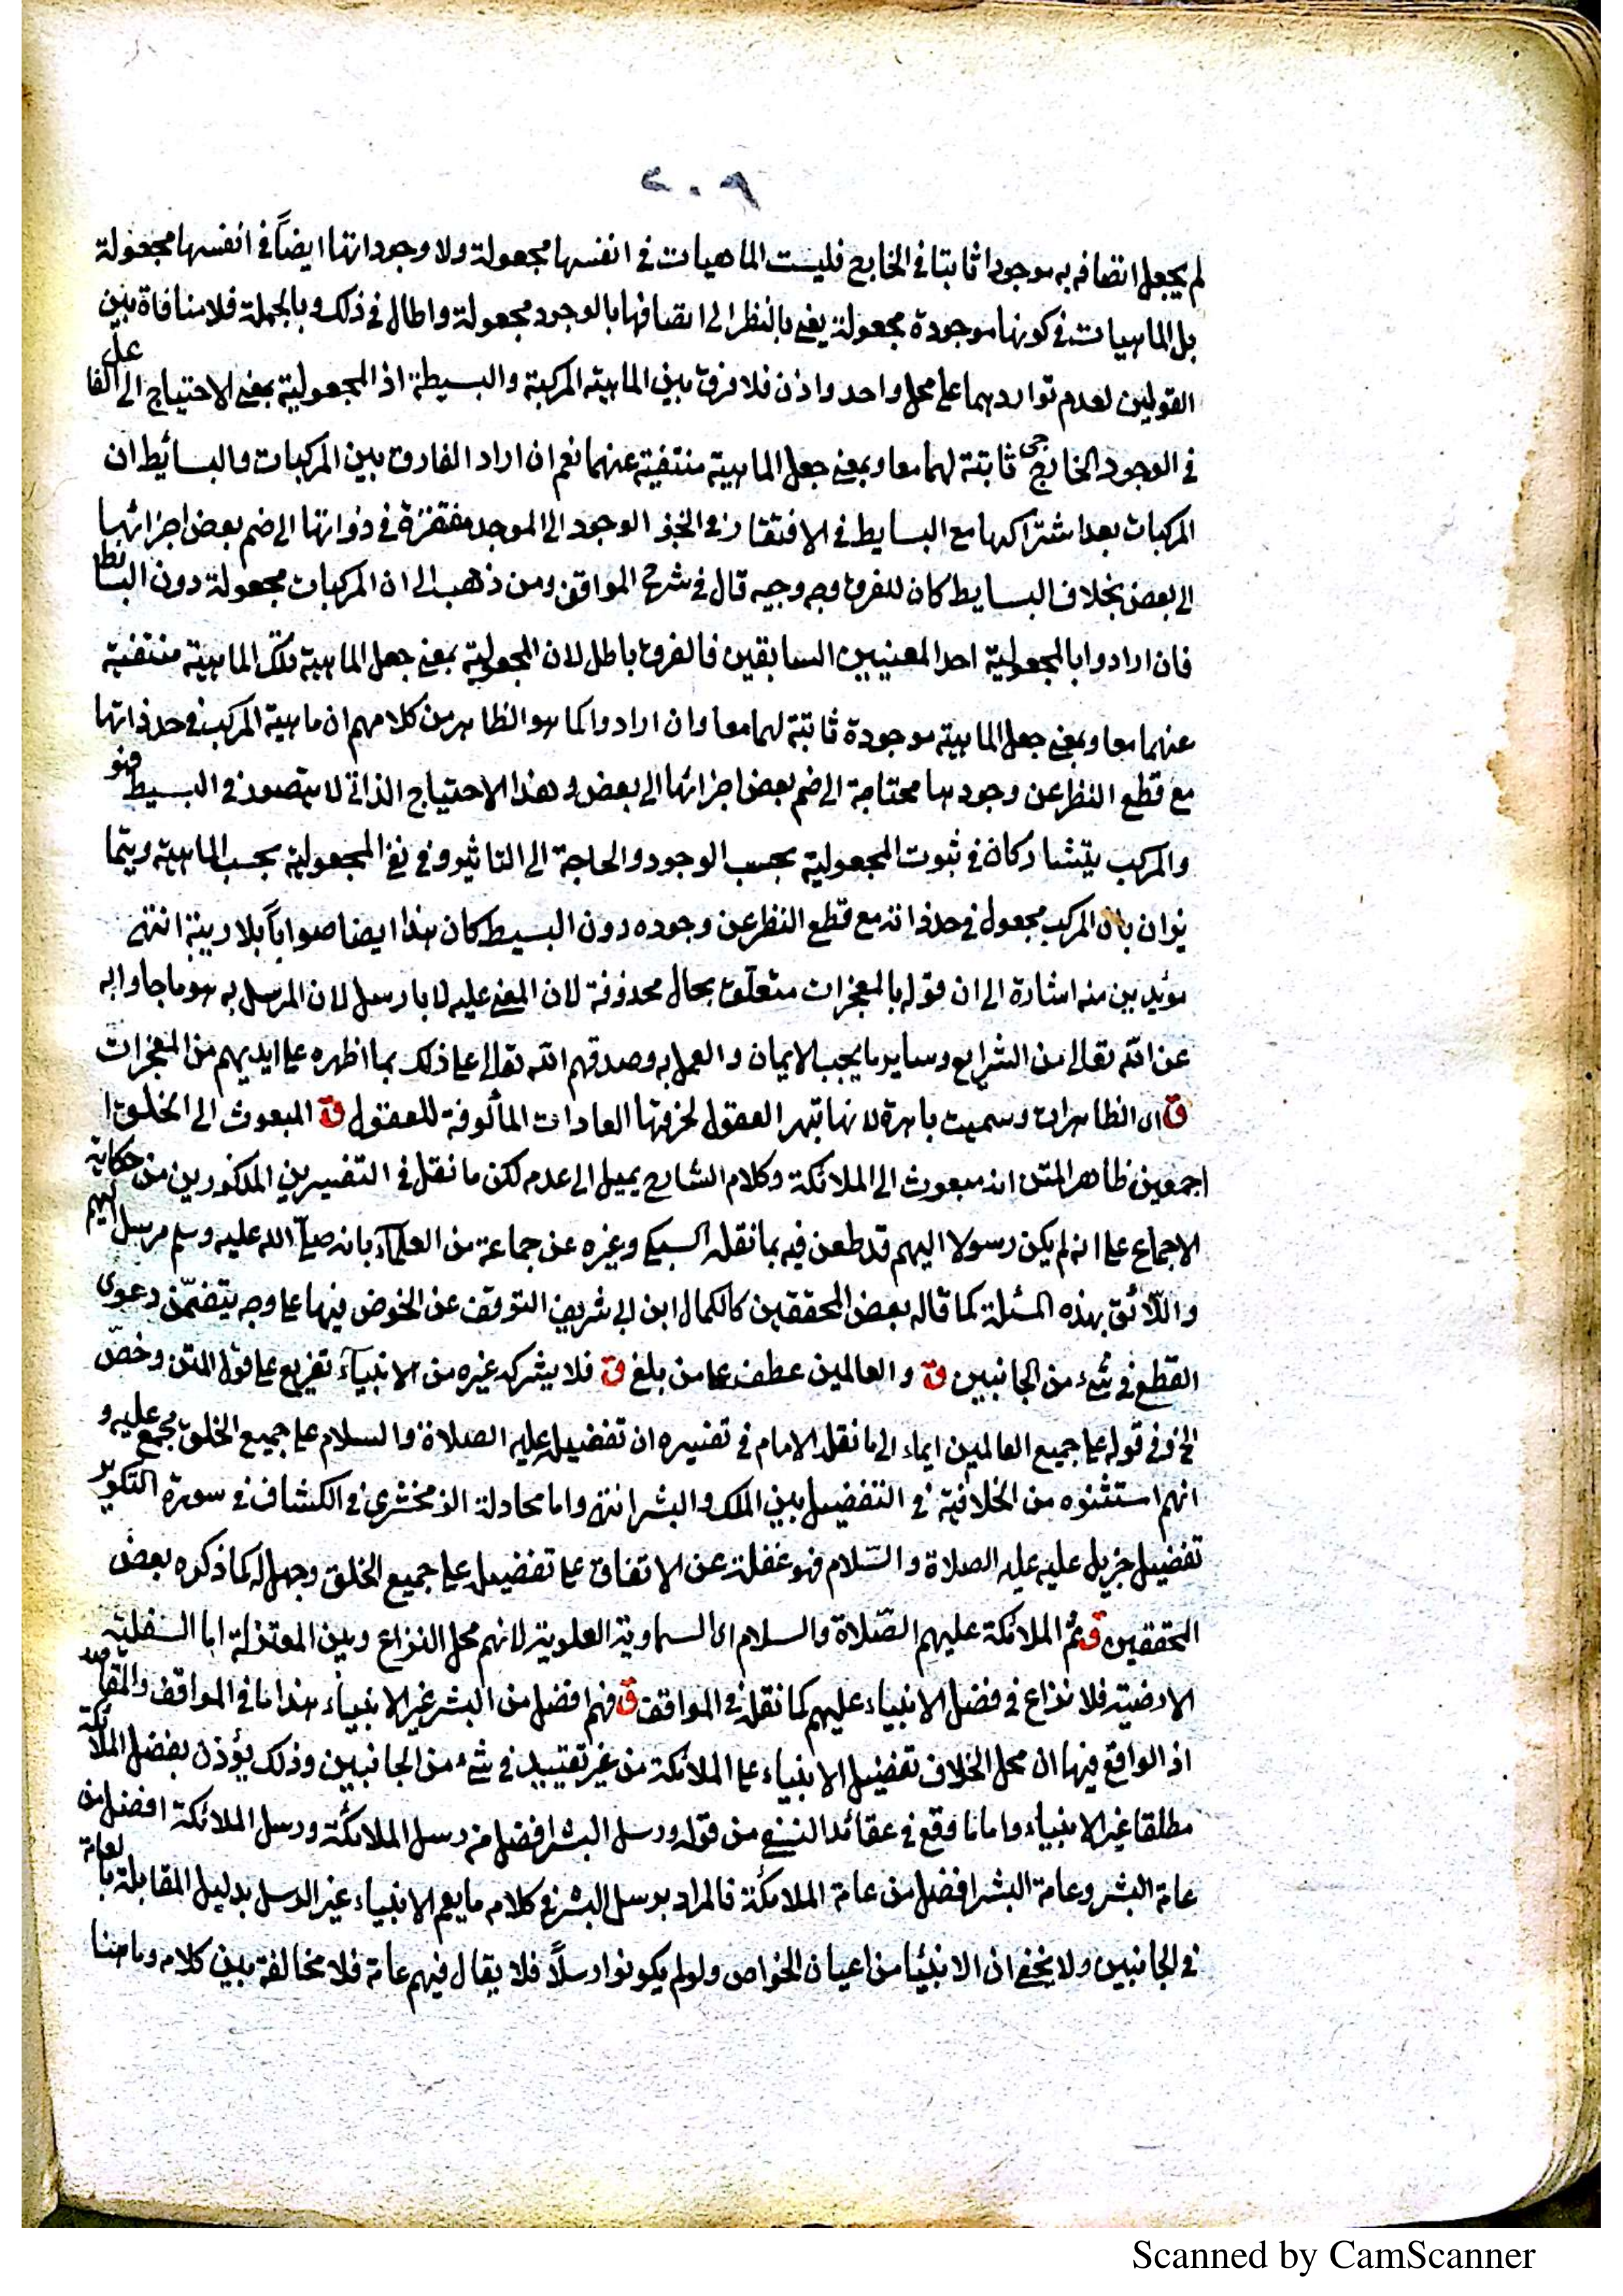 ٢٠٩
لم يجعل اتصافه به موجودا ثابتا في الخارج فليست الماهيات في انفسها مجعولة ولا وجوداتها ايضاً في انفسها مجعولة
بل الماهيات في كونها موجودة مجعولة يعني بالنظر الى اتصافها بالوجود مجعولة واطال في ذلك وبالجملة فلا منافاة بين
القولين لعدم تواردهما على محل واحد واذن فلا فرق بين الماهية المركبة والبسيطة اذ المجعولية بمعنى الاحتياج الى الفاعل
في الوجود الخارجي ثابتة لهما معا وبمعنى جعل الماهية منتفية عنهما نعم ان اراد الفارق بين المركبات والبسائط ان
المركبات بعد اشتراكها مع البسايط في الافتقار في الوجود الى الموجد مفتقرة في ذواتها الى ضم بعض اجزائها
الى بعض بخلاف البسايط كان للفرق وجه وجيه قال في شرح المواقف ومن ذهب الى ان المركبات مجعولة دون البسائط
فان ارادوا بالمجعولية احد المعنيين السابقين فالفرق باطل لان المجعولية بمعنى جعل الماهية تلك الماهية منتفية
عنهما معا وبمعنى جعل الماهية موجودة ثابتة لهما معا وان ارادوا كما هو الظاهر من كلامهم ان ماهية المركب في حد ذاتها
مع قطع النظر عن وجودها محتاجة الى ضم بعض اجزائها الى بعض وهذا الاحتياج الذاتي لا يتصور في البسيط فهو
والمركب يتشاركان في ثبوت المجعولية بحسب الوجود والحاجة الى التاثير وفي نفي المجعولية بحسب الماهية ويتما
يزان بان المركب مجعول في حد ذاته مع قطع النظر عن وجوده دون البسيط كان هذا ايضا صواباً بلا ريبة انتهى
مؤيدين منه اشارة الى ان قوله بالمعجزات متعلق بحال محذوفة لان المعنى عليه لا بارسل لان المرسل به هو ما جاوا به
عن الله تعالى من الشرايع وساير ما يجب الايمان والعمل به وصدقهم الله تعالى على ذلك بما اظهره على ايديهم من المعجزات
ق اى الظاهرات وسميت باهرة لانها تبهر العقول لخرقها العادات المألوفة للعقول ق المبعوث الى الخلق ا
اجمعين ظاهر المتن انه مبعوث الى الملائكة وكلام الشارح يميل الى عدمه لكن ما نقل في التفسيرين المذكورين من حكاية
الاجماع على انه لم يكن رسولا اليهم قد طعن فيه بما نقله السبكي وغيره عن جماعة من العلمآء بانه صلى الله عليه وسلم مرسل اليهم
واللائق بهذه المسئلة كما قاله بعض المحققين كالكمال ابن ابي شريف التوقف عن الخوض فيها على وجه يتضمّن دعوى
القطع في شئ من الجانبين ق والعالمين عطف على من بلغ ق فلا يشركه غيره من الانبيآء تفريع على قول المتن وخصّ
الخ وفي قوله على جميع العالمين ايماء الى ما نقله الامام في تفسيره ان تفضيله عليه الصلاة والسلام على جميع الخلق مجمع عليه و
انهم استثنوه من الخلافية في التفضيل بين الملك والبشر انتهى واما محاولة الزمخشري في الكشاف في سورة التكوير
تفضيل جبريل عليه عليه الصلاة والسّلام فهو غفلة عن الاتفاق على تفضيله على جميع الخلق وجهل له كما ذكره بعض
المحققين ق ثم الملائكة عليهم الصّلاة والسلام اى السماوية العلوية لانهم محل النزاع وبين المعتزلة اما السفلية
الارضية فلا نزاع في فضل الانبياء عليهم كما نقل في المواقف ق فهم افضل من البشر غير الانبياء هذا ما في المواقف والمقاصد
اذ الواقع فيها ان محل الخلاف تفضيل الانبياء على الملائكة من غير تقييد في شئ من الجانبين وذلك يؤذن بفضل الملائكة
مطلقا غير الانبياء واما ما وقع في عقائد النسفي من قوله ورسل البشر افضل من رسل الملائكة ورسل الملائكة افضل من
عامة البشر وعامة البشر افضل من عامة الملائكة فالمراد برسل البشر في كلامه ما يعم الانبياء غير الرسل بدليل المقابلة بالعامة
في الجانبين ولا يخفى ان الانبيا من اعيان الخواص ولو لم يكونوا رسلاً فلا يقال فيهم عامة فلا مخالفة بين كلامه وما هنا
Scanned by CamScanner